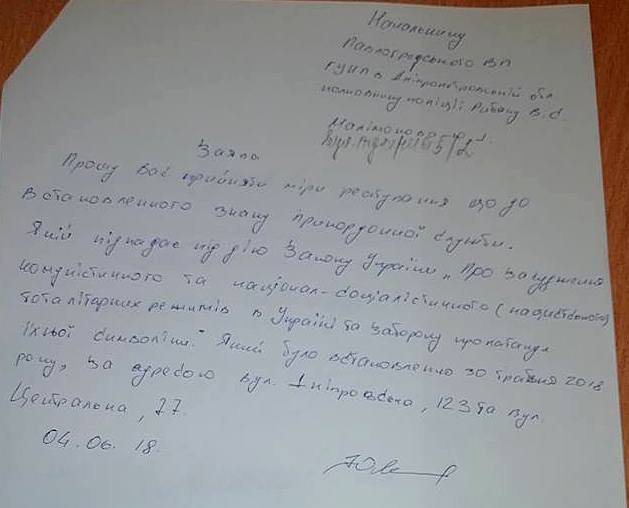 Начальнику
Павлоградського ВП
ГУНП в Дніпропетровській обл
полковнику поліції
Заява
Прошу Вас прийняти міри реагування що до
встановленного знаку прикордонної служби.
Який підпадає під дію Закону України „Про засудження
комуністичного та націонал-соціалістичного (нацистського)
тоталітарних режимів в Україні та заборону пропаганди
їхньої символіки." Який було встановленно 30 травня 2018
року, за адресою вул. Дніпровська, 123 та вул.
Центральна, 77.
04.06.18.